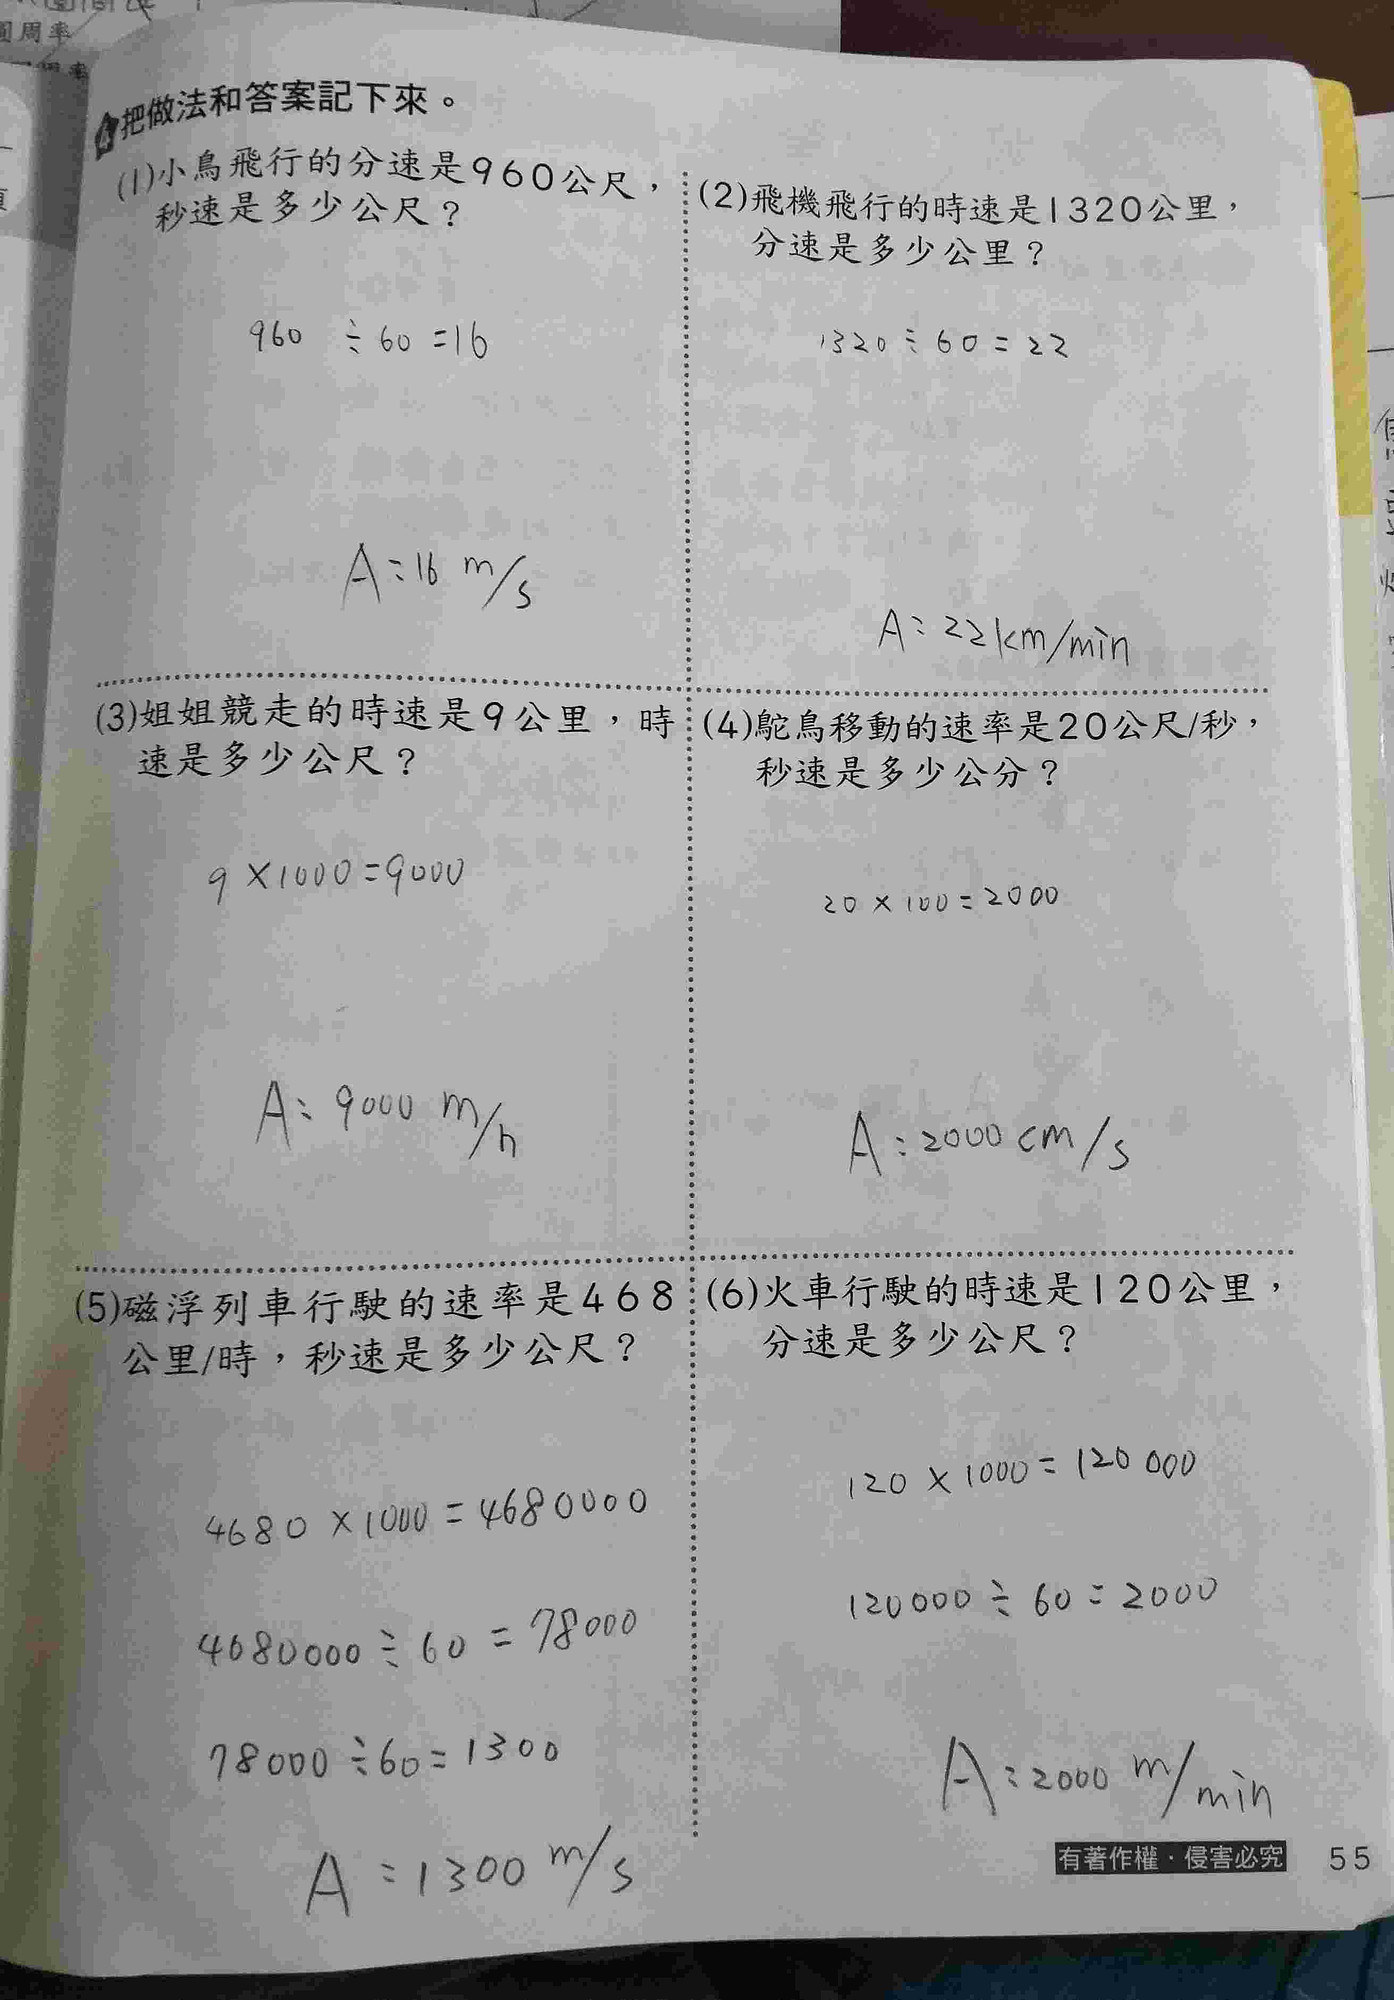 圓周率
把做法和答案記下來。
(1)小鳥飛行的分速是960公尺，
秒速是多少公尺？
960 ÷60=16
A:16 m/s
(2)飛機飛行的時速是1320公里，
分速是多少公里？
1320÷60=22
A:22km/min
(3)姐姐競走的時速是9公里，時
速是多少公尺？
9×1000=9000
A:9000 m/h
(4)鴕鳥移動的速率是20公尺/秒，
秒速是多少公分？
20×100=2000
A:2000cm/s
(5)磁浮列車行駛的速率是468
公里/時，秒速是多少公尺？
4680×1000=4680000
4680000÷60=78000
78000÷60=1300
A:1300 m/s
(6)火車行駛的時速是120公里，
分速是多少公尺？
120×1000=120000
120000÷60=2000
A:2000 m/min
有著作權·侵害必究 55